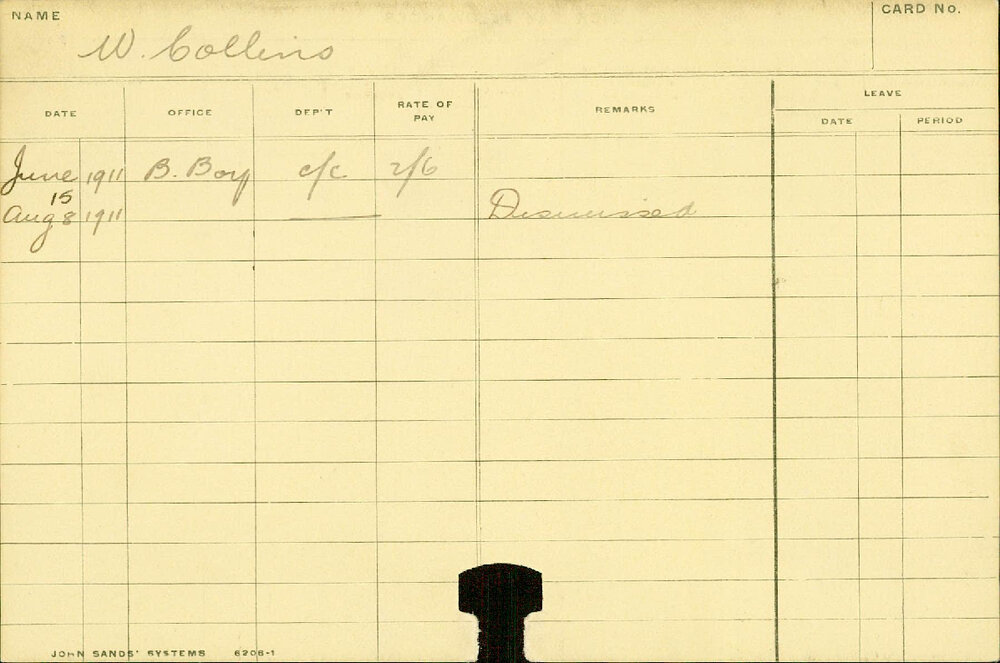 NAME
W. Collins
CARD No.
DATE OFFICE DEP'T RATE OF PAY REMARKS LEAVE
DATE PERIOD
June 15 1911 B. Boy c/c 2/6
Aug 8 1911 Dismissed
JOHN SANDS' SYSTEMS 6206-1